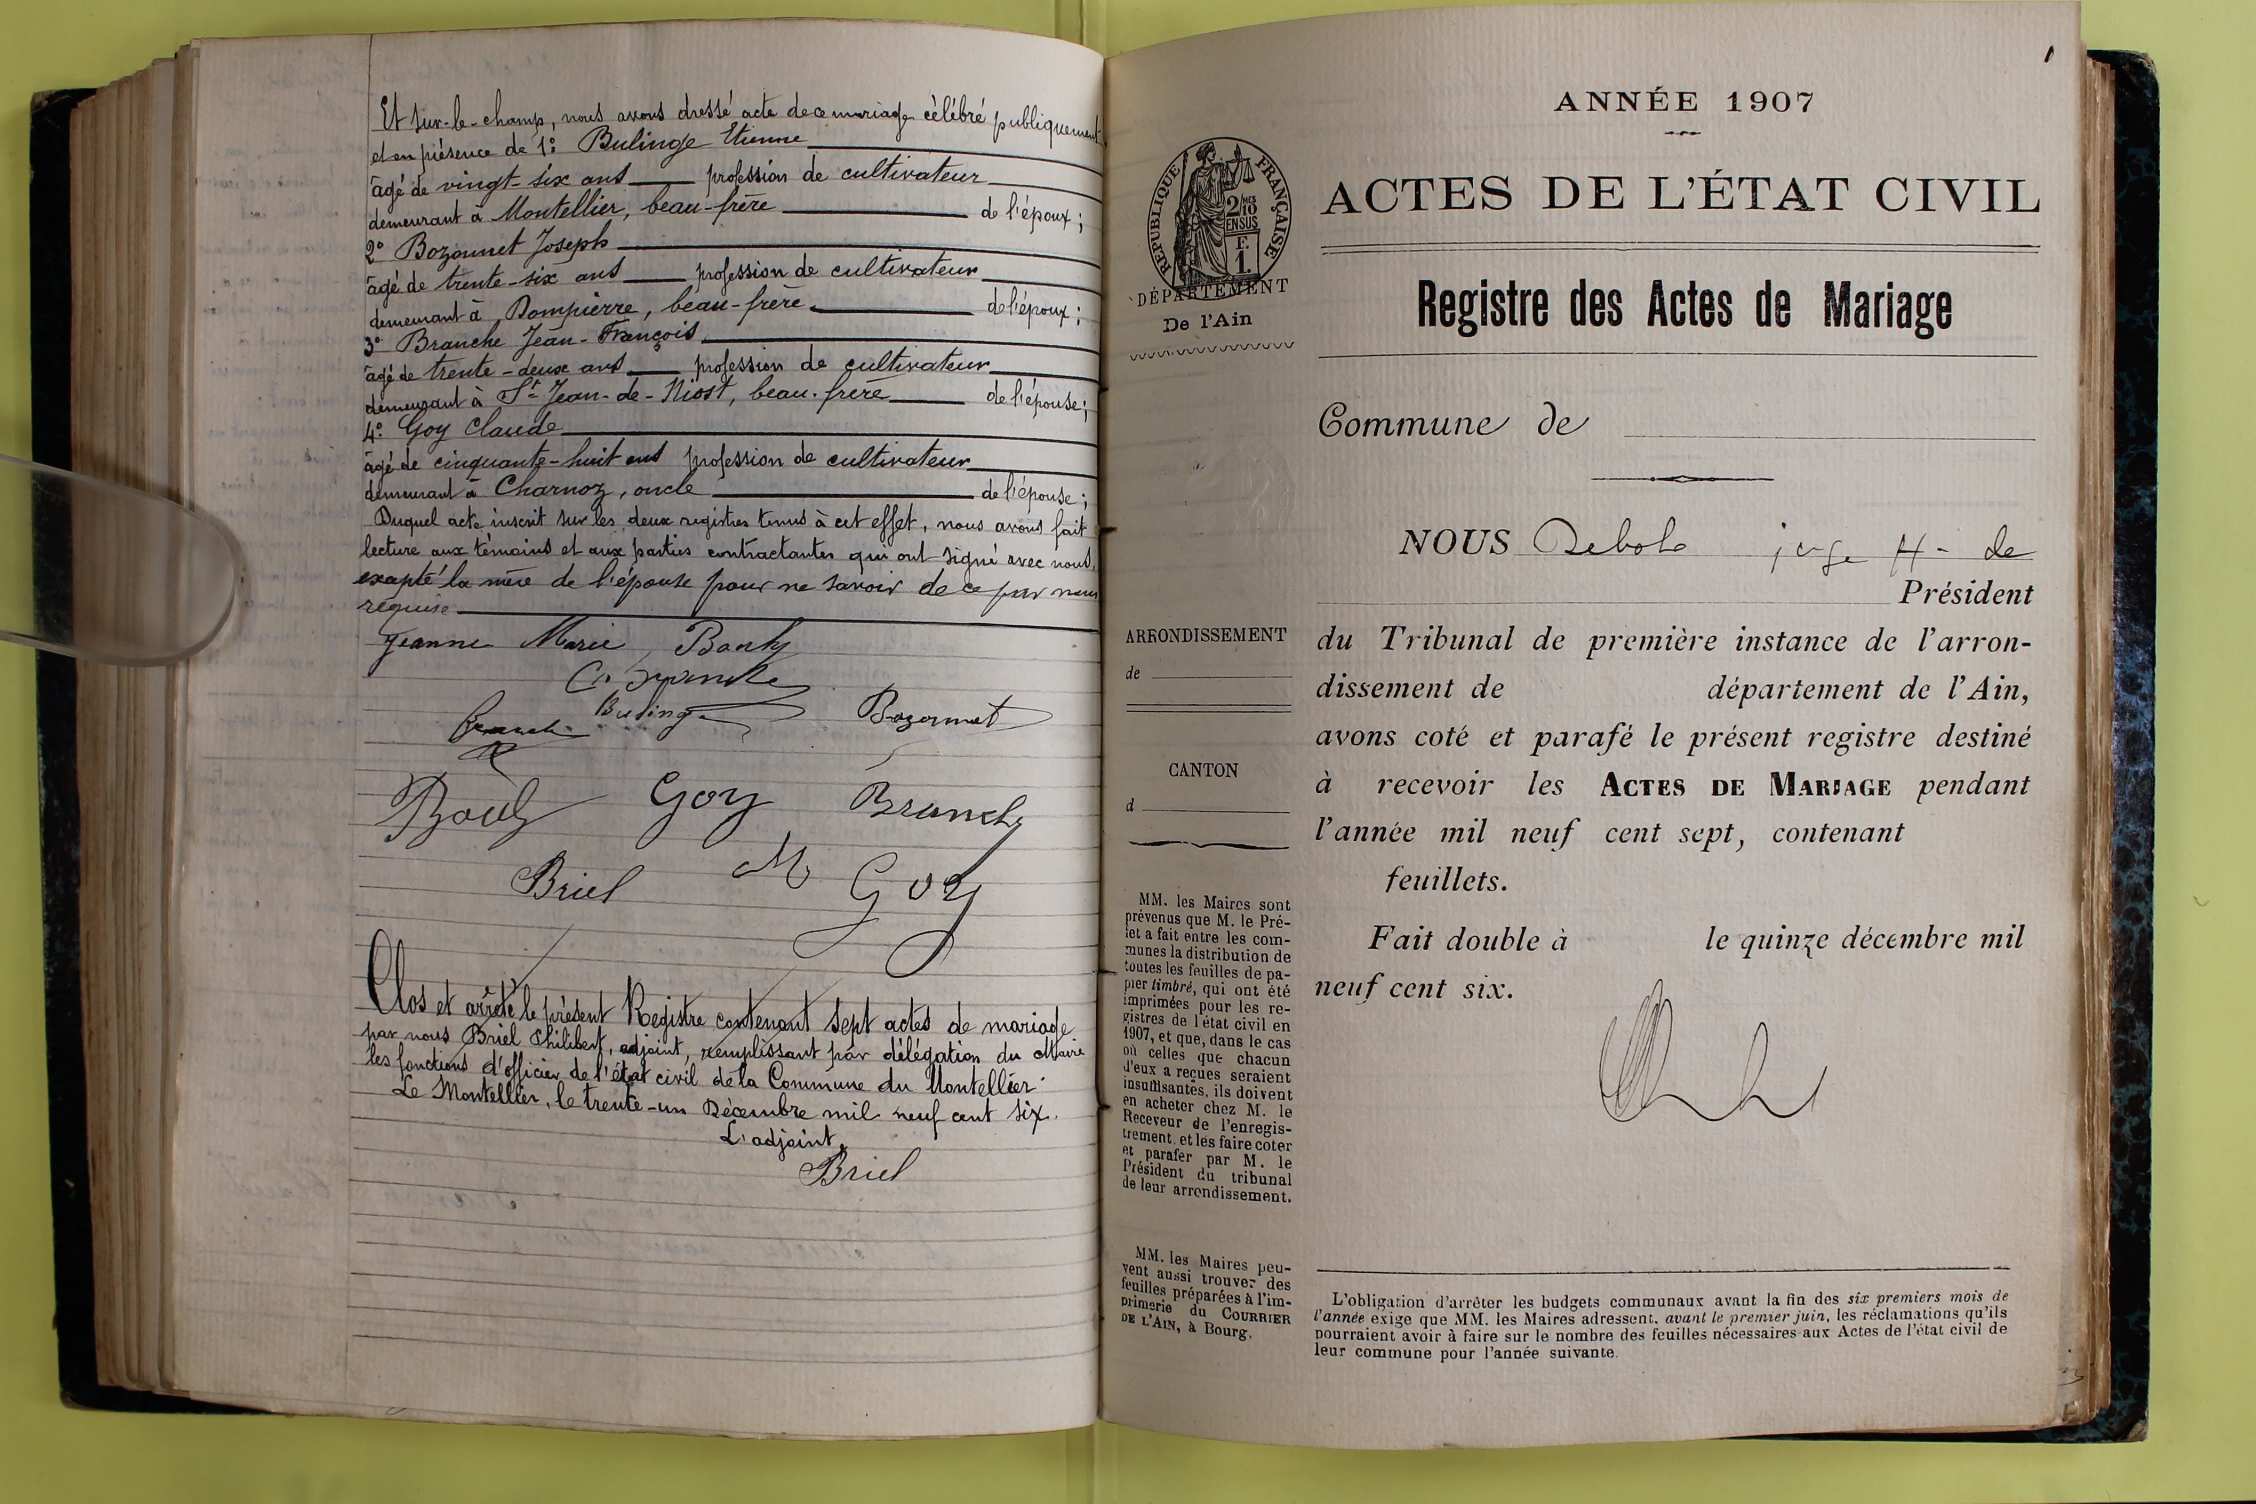 Et sur-le-champ, nous avons dressé acte de ce mariage célébré publiquement
et en présence de 1º: Bulinge Etienne
âgé de vingt-six ans profession de cultivateur
demeurant à Montellier, beau-frère de l'époux;
2º Bozonnet Joseph
âgé de trente-six ans profession de cultivateur
demeurant à Dompierre, beau-frère de l'époux;
3º Branche Jean-François
âgé de trente-deux ans profession de cultivateur
demeurant à St Jean-de-Niost, beau-frère de l'épouse;
4º: Goy Claude
âgé de cinquante-huit ans profession de cultivateur
demeurant à Charnoz, oncle de l'épouse;
Duquel acte inscrit sur les deux registres tenus à cet effet, nous avons fait
lecture aux témoins et aux parties contractantes qui ont signé avec nous,
exapté la mère de l'épouse pour ne savoir de ce par nous
réquise
Jeanne Marie
Buling
Bozonnet
Goy Branche
Briel M Goy
Clos et arrêté le présent Registre contenant sept actes de mariage
par nous Briel Philibert, adjoint, remplissant par délégation du Maire
les fonctions d'officier de l'état civil de la Commune du Montellier.
Le Montellier, le trente-un Décembre mil neuf cent six.
L'adjoint,
Briel
RÉPUBLIQUE FRANÇAISE
2/10 MES
EN SUS
F.
1.
DÉPARTEMENT
De l'Ain
ARRONDISSEMENT
de
CANTON
d
MM. les Maires sont
prévenus que M. le Pré-
fet a fait entre les com-
munes la distribution de
toutes les feuilles de pa-
pier timbré, qui ont été
imprimées pour les re-
gistres de l'état civil en
1907, et que, dans le cas
où celles que chacun
d'eux a reçues seraient
insuffisantes, ils doivent
en acheter chez M. le
Receveur de l'enregis-
trement et les faire coter
et parafer par M. le
Président du tribunal
de leur arrondissement.
MM. les Maires peu-
vent aussi trouver des
feuilles préparées à l'im-
primerie du COURRIER
DE L'AIN, à Bourg.
1
ANNÉE 1907
ACTES DE L'ÉTAT CIVIL
Registre des Actes de Mariage
Commune de
NOUS juge de
Président
du Tribunal de première instance de l'arron-
dissement de département de l'Ain,
avons coté et parafé le présent registre destiné
à recevoir les ACTES DE MARIAGE pendant
l'année mil neuf cent sept, contenant
feuillets.
Fait double à le quinze décembre mil
neuf cent six.
L'obligation d'arrêter les budgets communaux avant la fin des six premiers mois de
l'année exige que MM. les Maires adressent, avant le premier juin, les réclamations qu'ils
pourraient avoir à faire sur le nombre des feuilles nécessaires aux Actes de l'état civil de
leur commune pour l'année suivante.